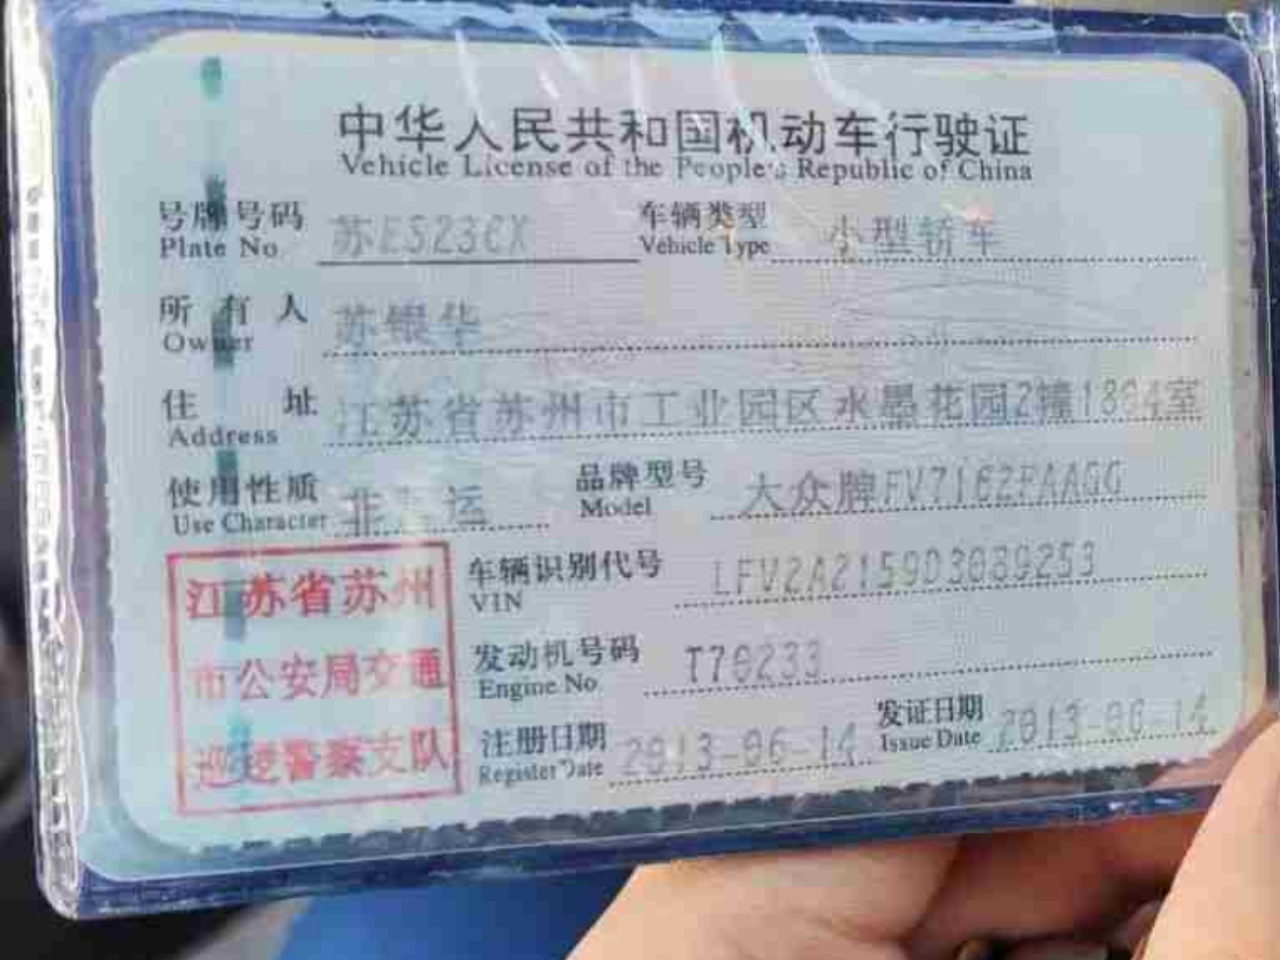 中华人民共和国机动车行驶证
Vehicle License of the People's Republic of China
号牌号码 苏E523CX 车辆类型 小型轿车
Plate No. Vehicle Type
所有人 苏银华
Owner
住址 江苏省苏州市工业园区水墨花园2幢1864室
Address
使用性质 非 运 品牌型号 大众牌FV7162FAAGG
Use Character Model
江苏省苏州
市公安局交通
巡逻警察支队
车辆识别代号
VIN
发动机号码
Engine No.
注册日期 2013-06-14 发证日期 2013-06-14
Register Date Issue Date